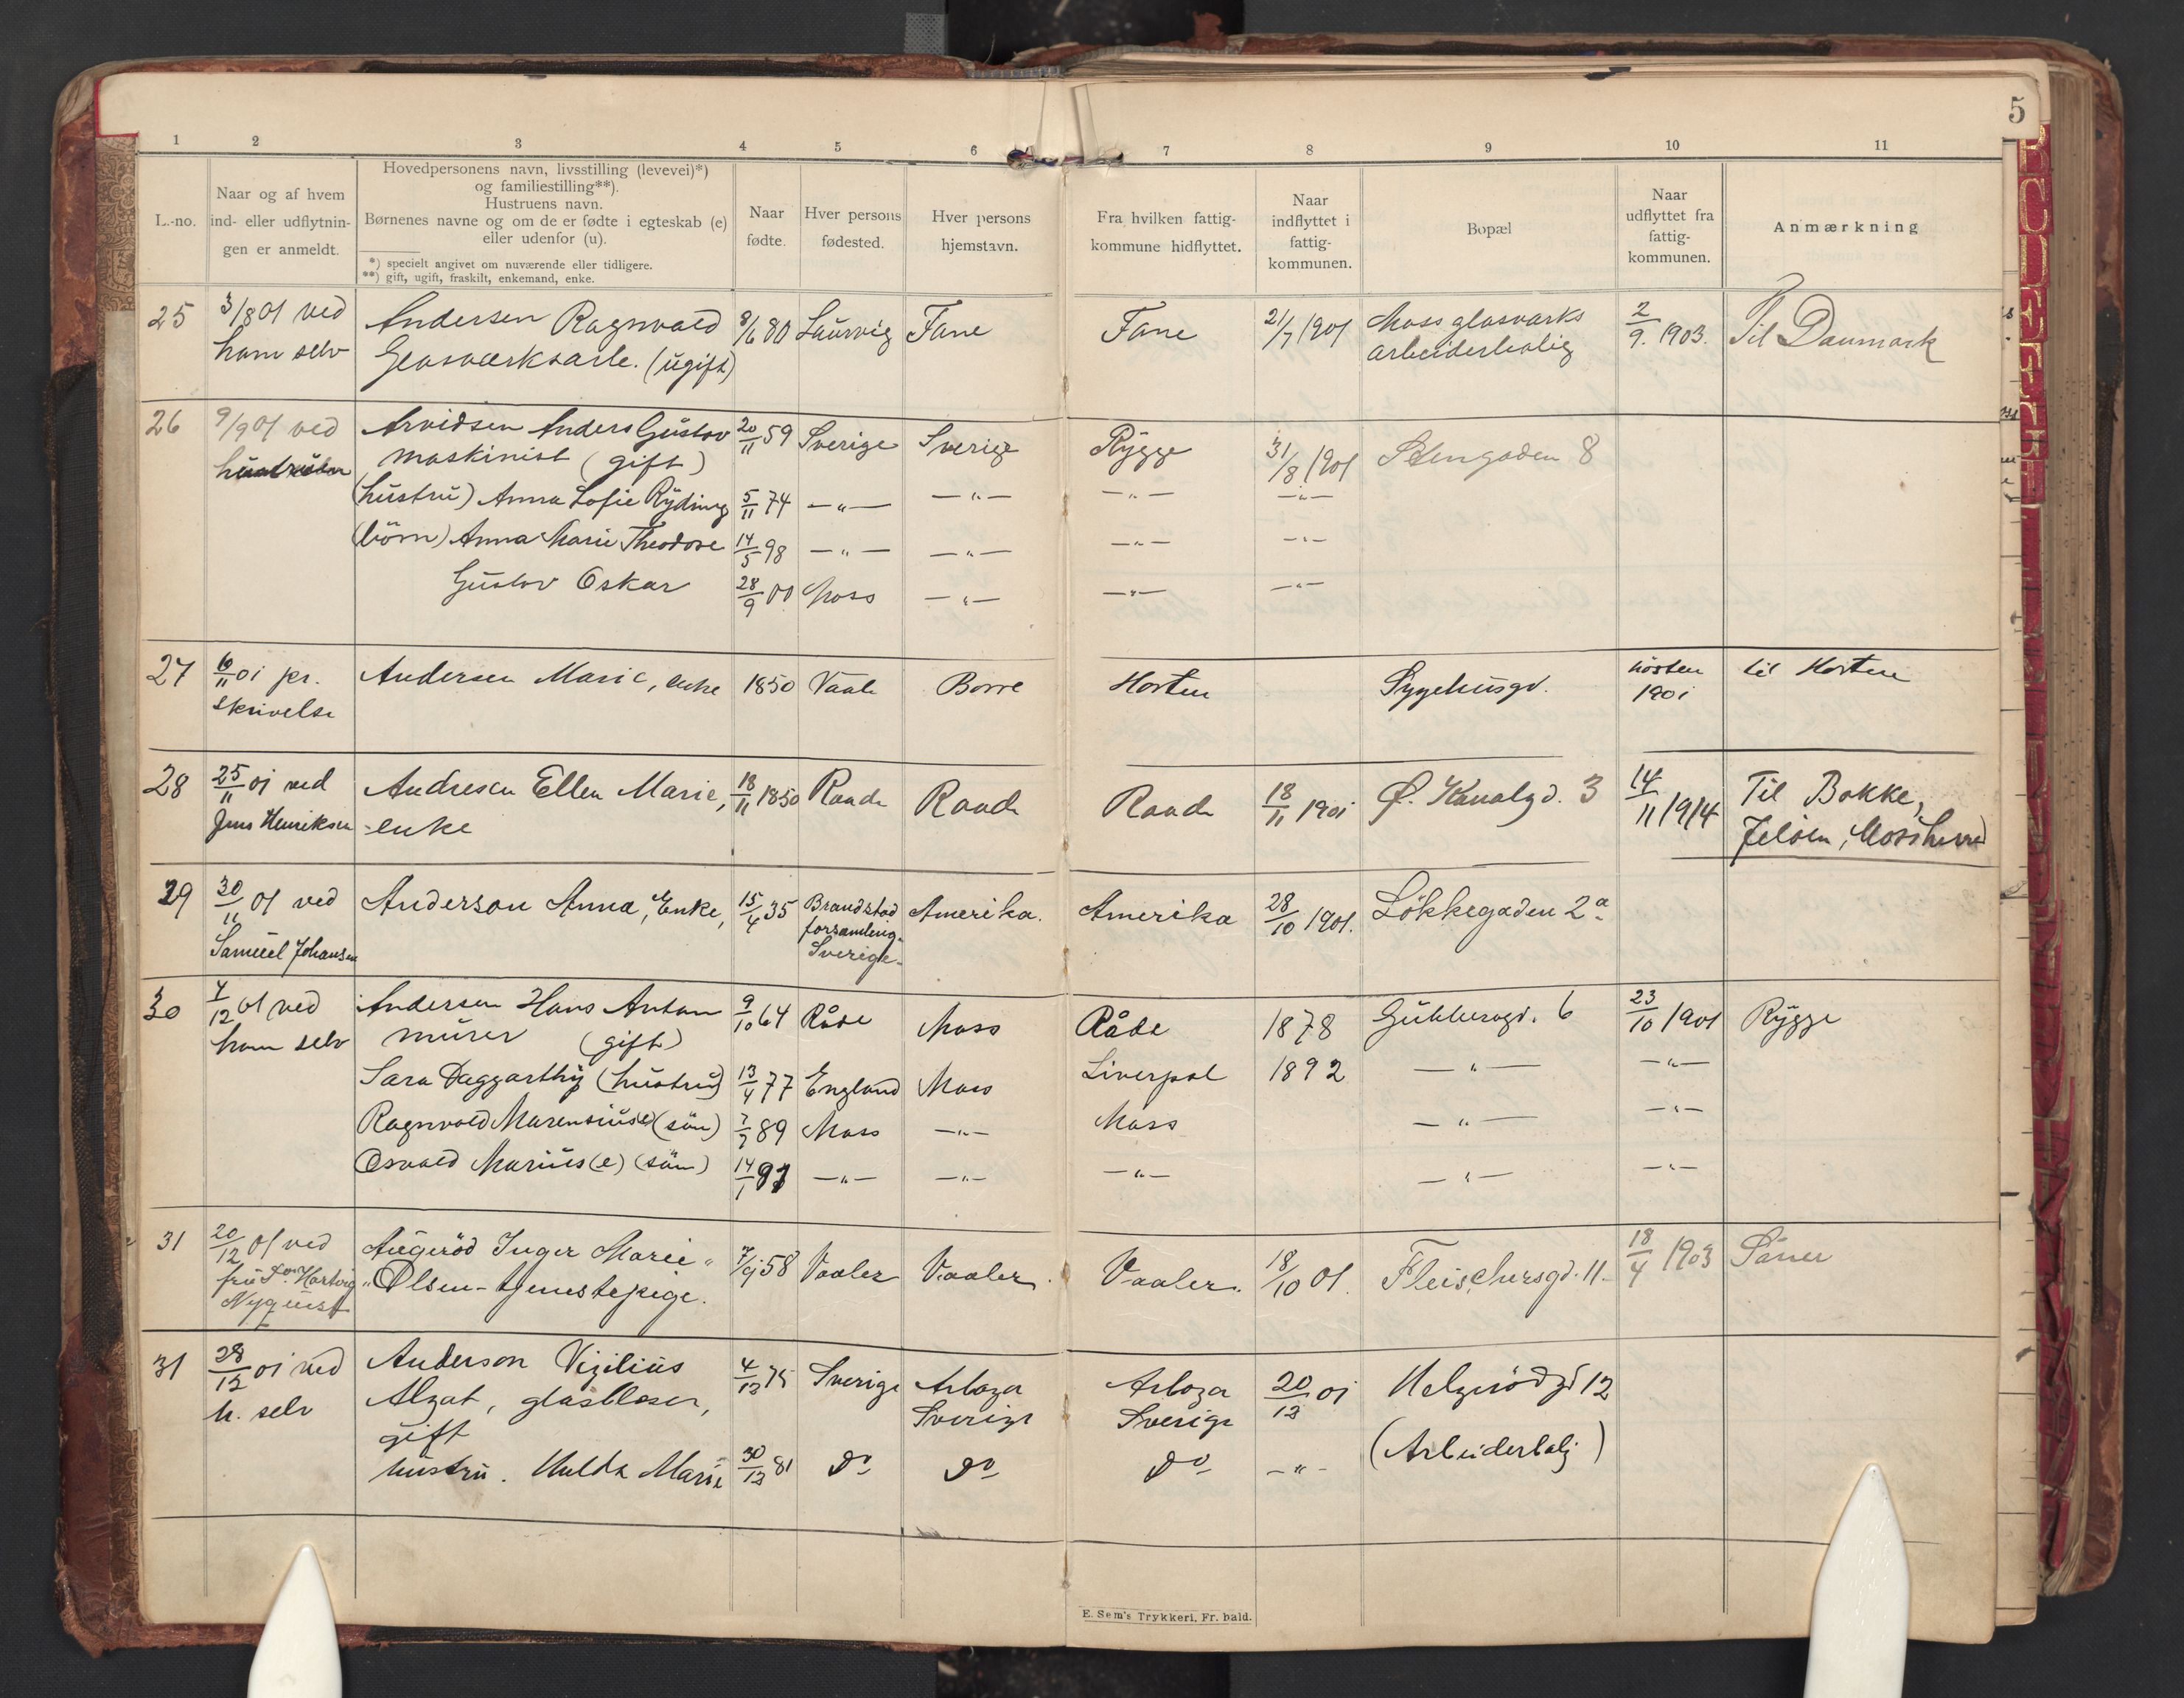 5
1 2 3 4 5 6 7 8 9 10 11
L.-no.
Naar og af hvem
ind- eller udflytnin-
gen er anmeldt.
Hovedpersonens navn, livsstilling (levevei)*)
og familiestilling**).
Hustruens navn.
Børnenes navne og om de er fødte i egteskab (e)
eller udenfor (u).
*) specielt angivet om nuværende eller tidligere.
**) gift, ugift, fraskilt, enkemand, enke.
Naar
fødte.
Hver persons
fødested.
Hver persons
hjemstavn.
Fra hvilken fattig-
kommune hidflyttet.
Naar
indflyttet i
fattig-
kommunen.
Bopæl
Naar
udflyttet fra
fattig-
kommunen.
Anmærkning
25 3/8 01 ved Andersen Ragnvald 8/6 80 Laurvig Fane Fane 21/7 1901 Moss glasværks 2/9. 1903. Til Danmark
ham selv Glasværksarb. (ugift) arbeiderbolig
26 9/9 01 ved Arvidsen Anders Gustav 20/11 59 Sverige Sverige Rygge 31/8 1901 Stengaden 8
hustruen maskinist (gift)
(hustru) Anna Sofie Ryding 5/11 74 —„— —„— —„— —„—
(börn) Anna Marie Theodore 14/5 98 —„— —„— —„— —„—
Gustav Oskar 28/9 00 Moss —„— —„— —„—
27 6/11 01 pr. Andersen Marie, enke 1850 Vaale Borre Horten Sygehusgd. hösten til Horten
skrivelse 1901
28 25/11 01 ved Andresen Ellen Marie, 18/11 1850 Raade Raade Raade 18/11 1901 Ø. Kanalgd. 3 14/11 1914 Til Bokke,
Jens Henriksen enke Jelöen, Mossherred
29 30/11 01 ved Anderson Anna, Enke, 15/4 35 Brandstad Amerika. Amerika 28/10 1901. Lökkegaden 2a
forsamling
Samuel Johansen Sverige
30 4/12 01 ved Andersen Hans Anton 9/10 64 Råde Moss Råde 1878 6 23/10 1901 Rygge
ham selv murer (gift)
Sara Daggarthy (hustru) 13/4 77 England Moss Liverpol 1892 —„— —„—
Ragnvald Marensius (e) (sön) 7/7 89 Moss —„— Moss —„— —„—
Osvald Marius (e) (sön) 14/1 91 —„— —„— —„— —„— —„—
31 20/12 01 ved Augeröd Inger Marie 7/9 58 Vaaler Vaaler Vaaler. 18/10 01. Fleischersgd. 11. 18/4 1903 Såner
fru Hartvig Olsen - tjenestepige.
Nyquist
31 28/12 01 ved Anderson Vigilius 4/12 75 Sverige Arboga Arboga 20/12 01 Helgerödgd 12
h. selv Algat, glasblæser, Sverige Sverige
gift (Arbeiderbolj)
hustru. Hulda Marie 30/12 81 do do do —„—
E. Sem's Trykkeri, Fr. hald.